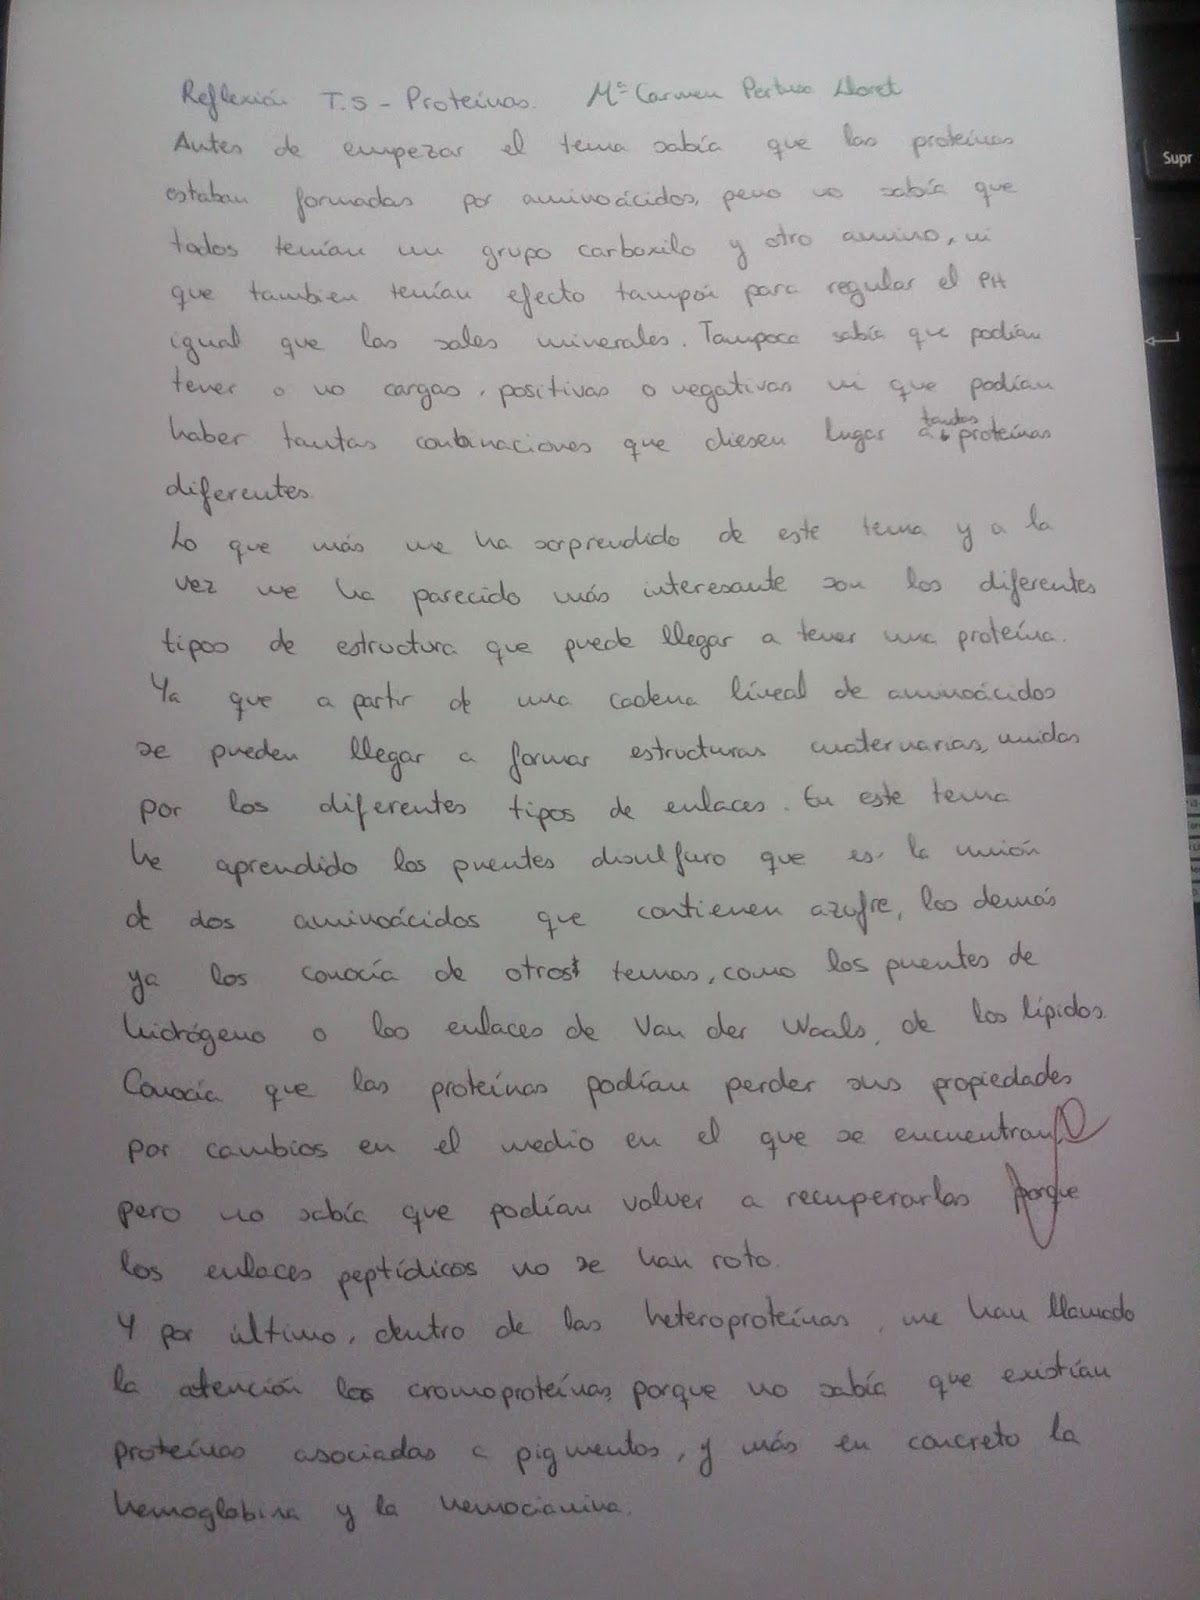 Reflexión T.5 - Proteínas. Mª Carmen Pertusa Lloret
Supr
Antes de empezar el tema sabía que las proteínas
estaban formadas por aminoácidos, pero no sabía que
todos tenían un grupo carboxilo y otro amino, ni
que tambien tenían efecto tampón para regular el PH
igual que las sales minerales. Tampoco sabía que podían
tener o no cargas, positivas o negativas ni que podían
haber tantas combinaciones que diesen lugar a tantas proteínas
diferentes.
Lo que más me ha sorprendido de este tema y a la
vez me ha parecido más interesante son los diferentes
tipos de estructura que puede llegar a tener una proteína.
Ya que a partir de una cadena líneal de aminoácidos
se pueden llegar a formar estructuras cuaternarias, unidas
por los diferentes tipos de enlaces. En este tema
he aprendido los puentes disulfuro que es la unión
de dos aminoácidos que contienen azufre, los demás
ya los conocía de otros temas, como los puentes de
hidrógeno o los enlaces de Van der Waals, de los lípidos.
Conocía que las proteínas podían perder sus propiedades
por cambios en el medio en el que se encuentran,
pero no sabía que podían volver a recuperarlas porque
los enlaces peptídicos no se han roto.
Y por último, dentro de las heteroproteínas, me han llamado
la atención las cromoproteínas, porque no sabía que existían
proteínas asociadas a pigmentos, y más en concreto la
hemoglobina y la hemocianina.